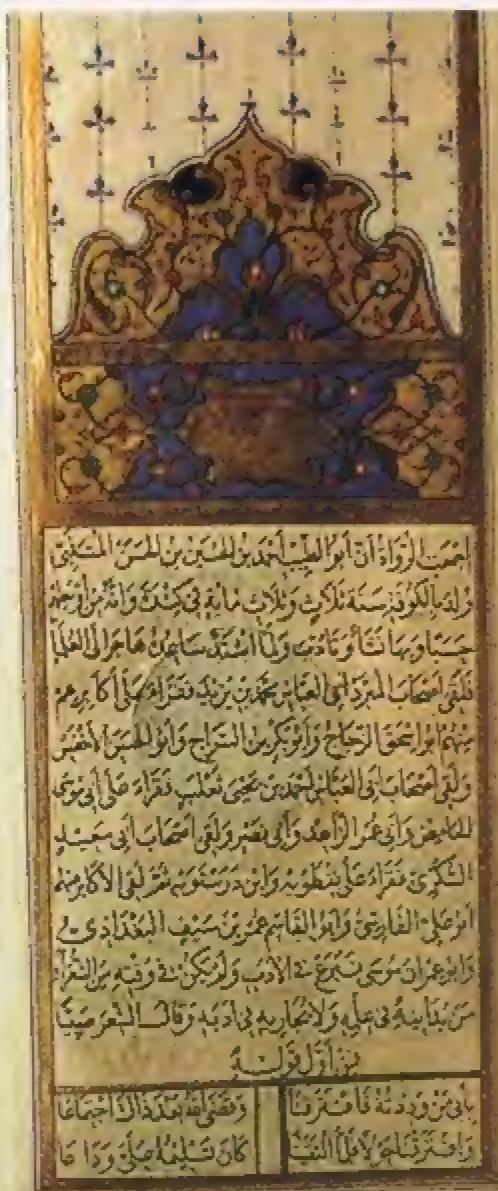 اجمعت الرواة أن أبو الطيب أحمد بن الحسين بن الحسن المتنبي
ولد بالكوفة سنة ثلاث وثلاث مائة في كندة وانه من أوجههم
حسبا وبها نشأ وتأدب ولما اشتد ساعده هاجر الى العلما
فلقي أصحاب المبرد ابي العباس محمد بن يزيد فقراء على أكابرهم
منهم ابو اسحق الزجاج وأبو بكر بن السراج وأبو الحسن الأخفش
ولقي أصحاب أبى العباس أحمد بن يحيى ثعلب فقراء على أبى موسى
الحامض وأبى عمر الزاهد وأبى نصر ولقى أصحاب أبى سعيد
السكرى فقراء على نفطويه وابن درستويه ثم لقى الأكابر منهم
أبو على الفارسى وأبو القاسم عمر بن سيف البغدادى
وابو عمران موسى فبرع فى الأدب ولم يكن فى وقته من الشعرآء
من يدانيه فى علمه ولا يجاريه فى ادبه وقال الشعر صبيا
فمن أول قوله
بأبى من وددته فافترقنا وقضى الله بعد ذاك اجتماعا
وافترقنا حولا فلما التقينا كان تسليمه على وداعا